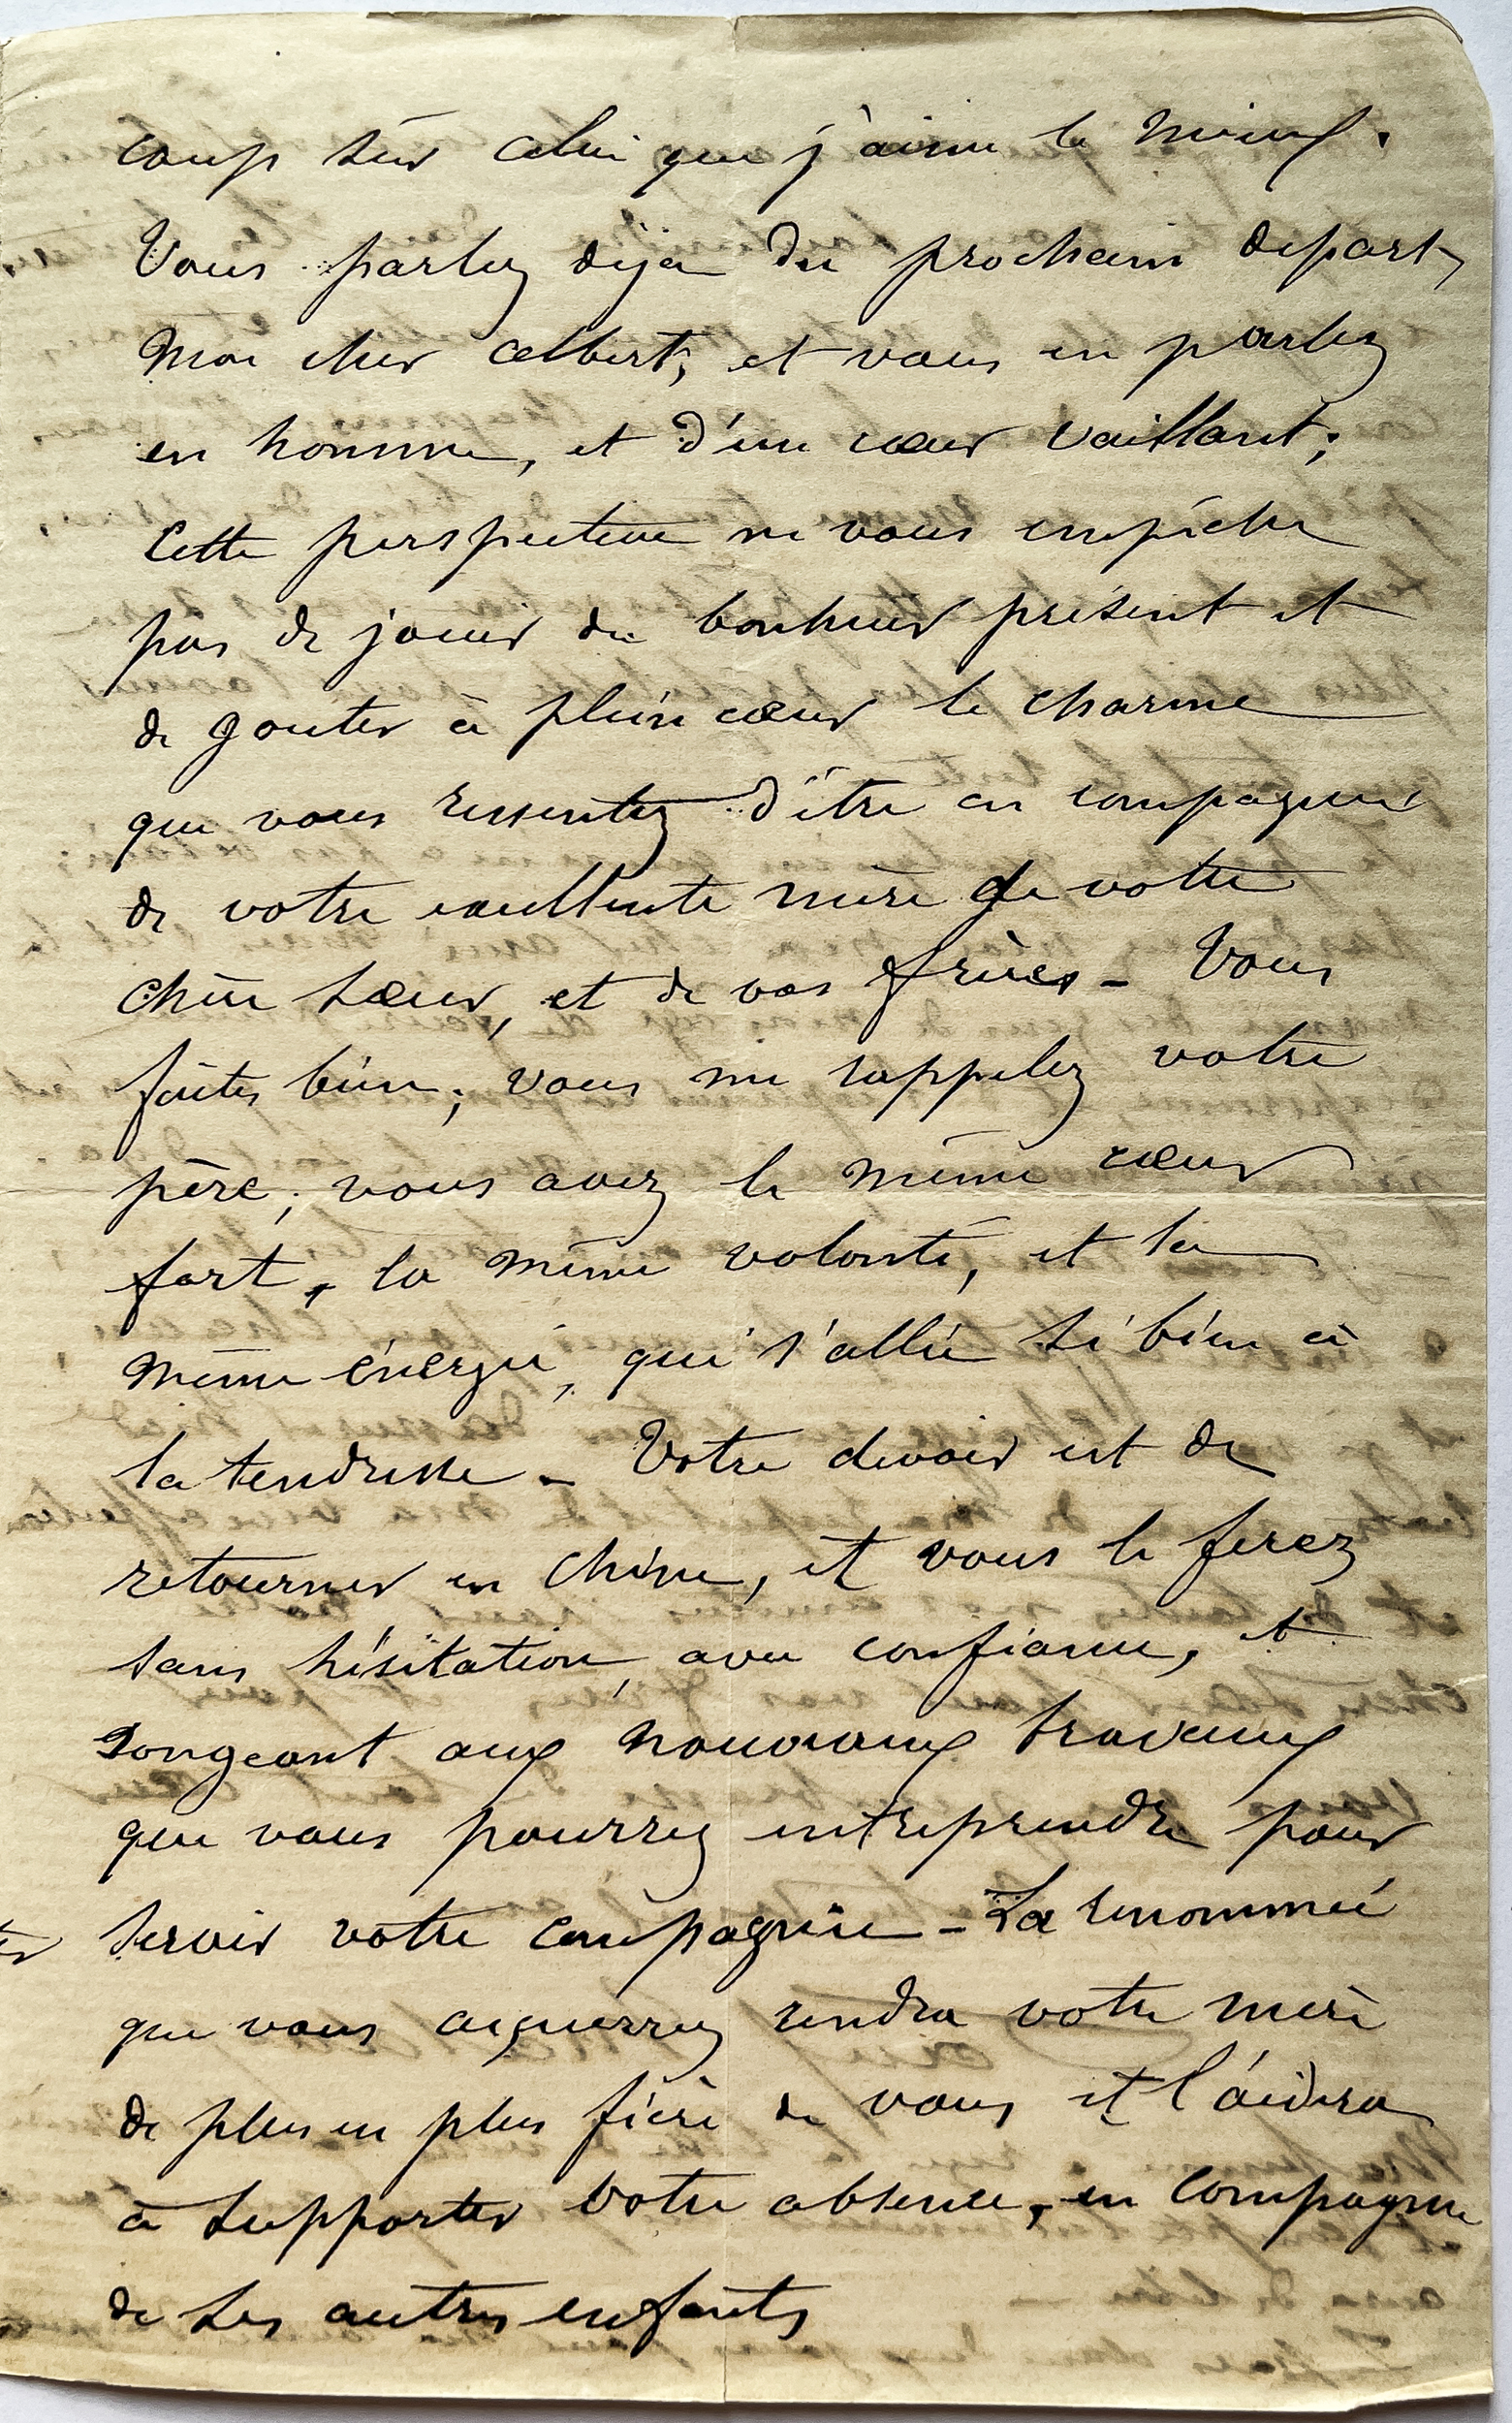 coup sûr celui que j'aime le mieux.
Vous parlez déja du prochain depart,
Mon cher Albert, et vous en parlez
en homme, et d'un cœur vaillant;
Cette perspective ne vous empêche
pas de jouir du bonheur présent et
de gouter à plein cœur le charme
que vous ressentez d'être en compagnie
de votre excellente mère de votre
chère sœur, et de vos frères - Vous
faites bien; vous me rappelez votre
père; vous avez le même cœur
fort, la même volonté, et la
même énergie, qui s'allie si bien à
la tendresse - Votre devoir est de
retourner en Chine, et vous le ferez
sans hésitation, avec confiance, et
songeant aux nouveaux travaux
que vous pourrez entreprendre pour
servir votre compagnie - La renommée
que vous acquerrez rendra votre mère
de plus en plus fière de vous et l'aidera
à supporter votre absence, en compagnie
de ses autres enfants